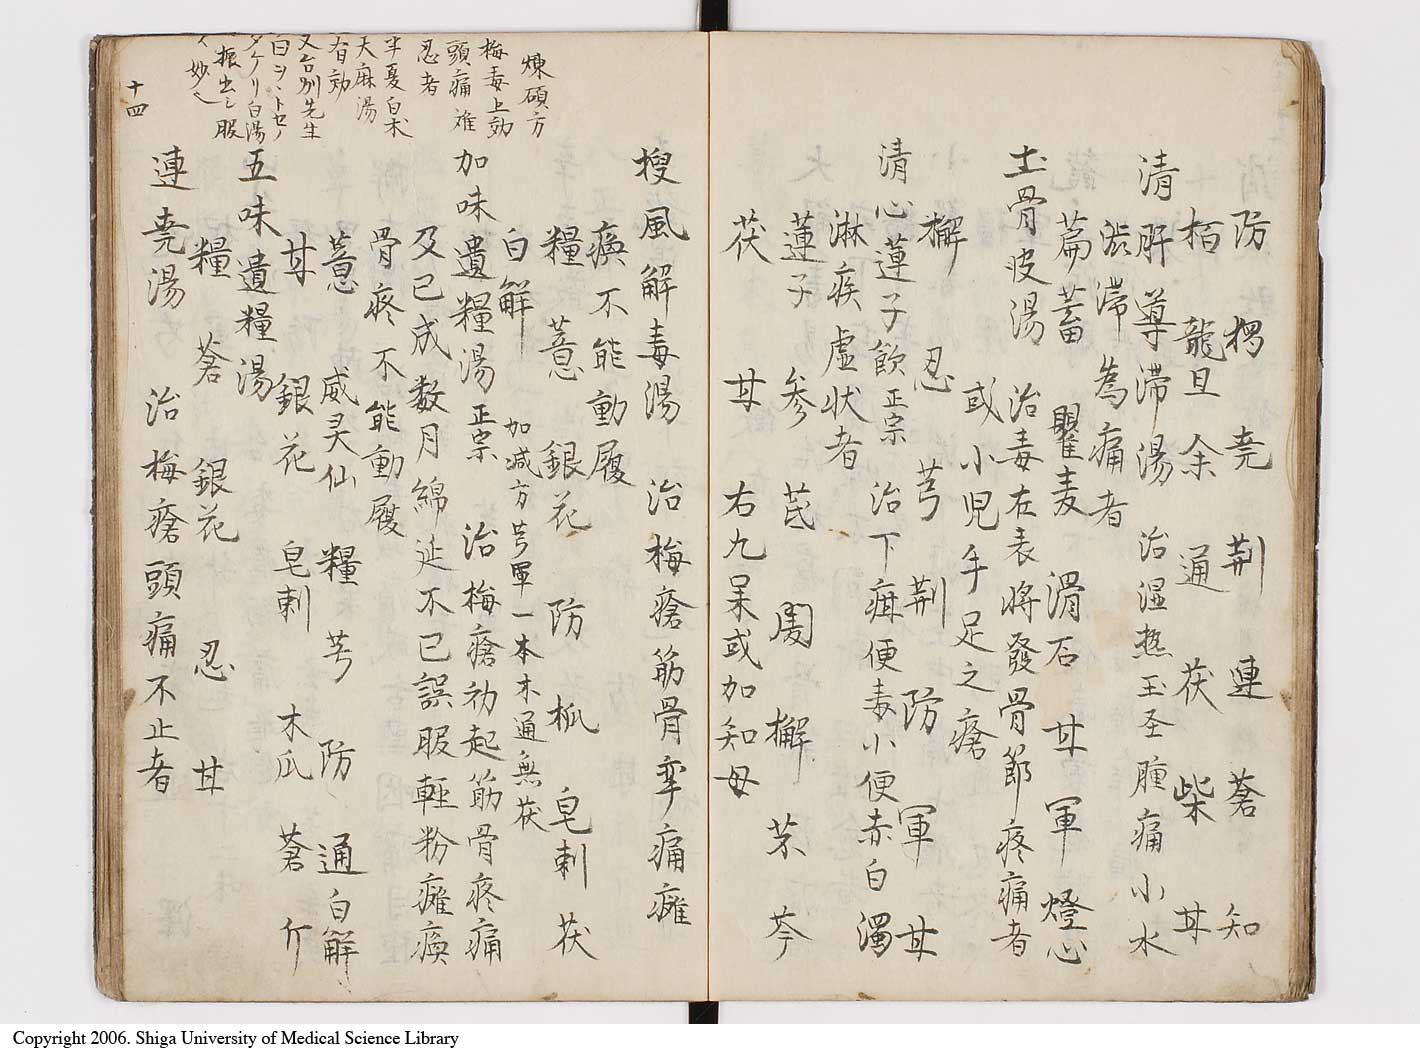 防 楞 尭 荆 連 蒼 知
栢 龍旦 余 通 茯 柴 甘
清肝導滞湯 治湿熱玉茎腫痛小水
渋滞為痛者
萹蓄 瞿麦 滑石 甘 軍 燈心
土骨皮湯 治毒在表将發骨節疼痛者
或小児手足之瘡
檞 忍 芎 荆 防 軍 甘
清心蓮子飲 正宗 治下疳便毒小便赤白濁
淋疾虚状者
蓮子 参 芪 周 檞 芩
茯 甘 右九味或加知母
搜風解毒湯 治梅瘡筋骨孿痛癱
瘓不能動履
糧 薏 銀花 防 木瓜 皂刺 茯
白鮮 加减方 芎軍一本木通無茯
加味遺糧湯 正宗 治梅瘡初起筋骨疼痛
及已成数月綿延不已誤服輕粉癱瘓
骨疼不能動履
薏 威灵仙 糧 芎 防 通 白鮮
甘 銀花 皂刺 木瓜 蒼 亇
五味遺糧湯
糧 蒼 銀花 忍 甘
連尭湯 治梅瘡頭痛不止者
煉碩方
梅毒上効
頭痛难
忍者
半夏白朮
天麻湯
有効
又台州先生
白
白湯
振出シ服
妙
十四